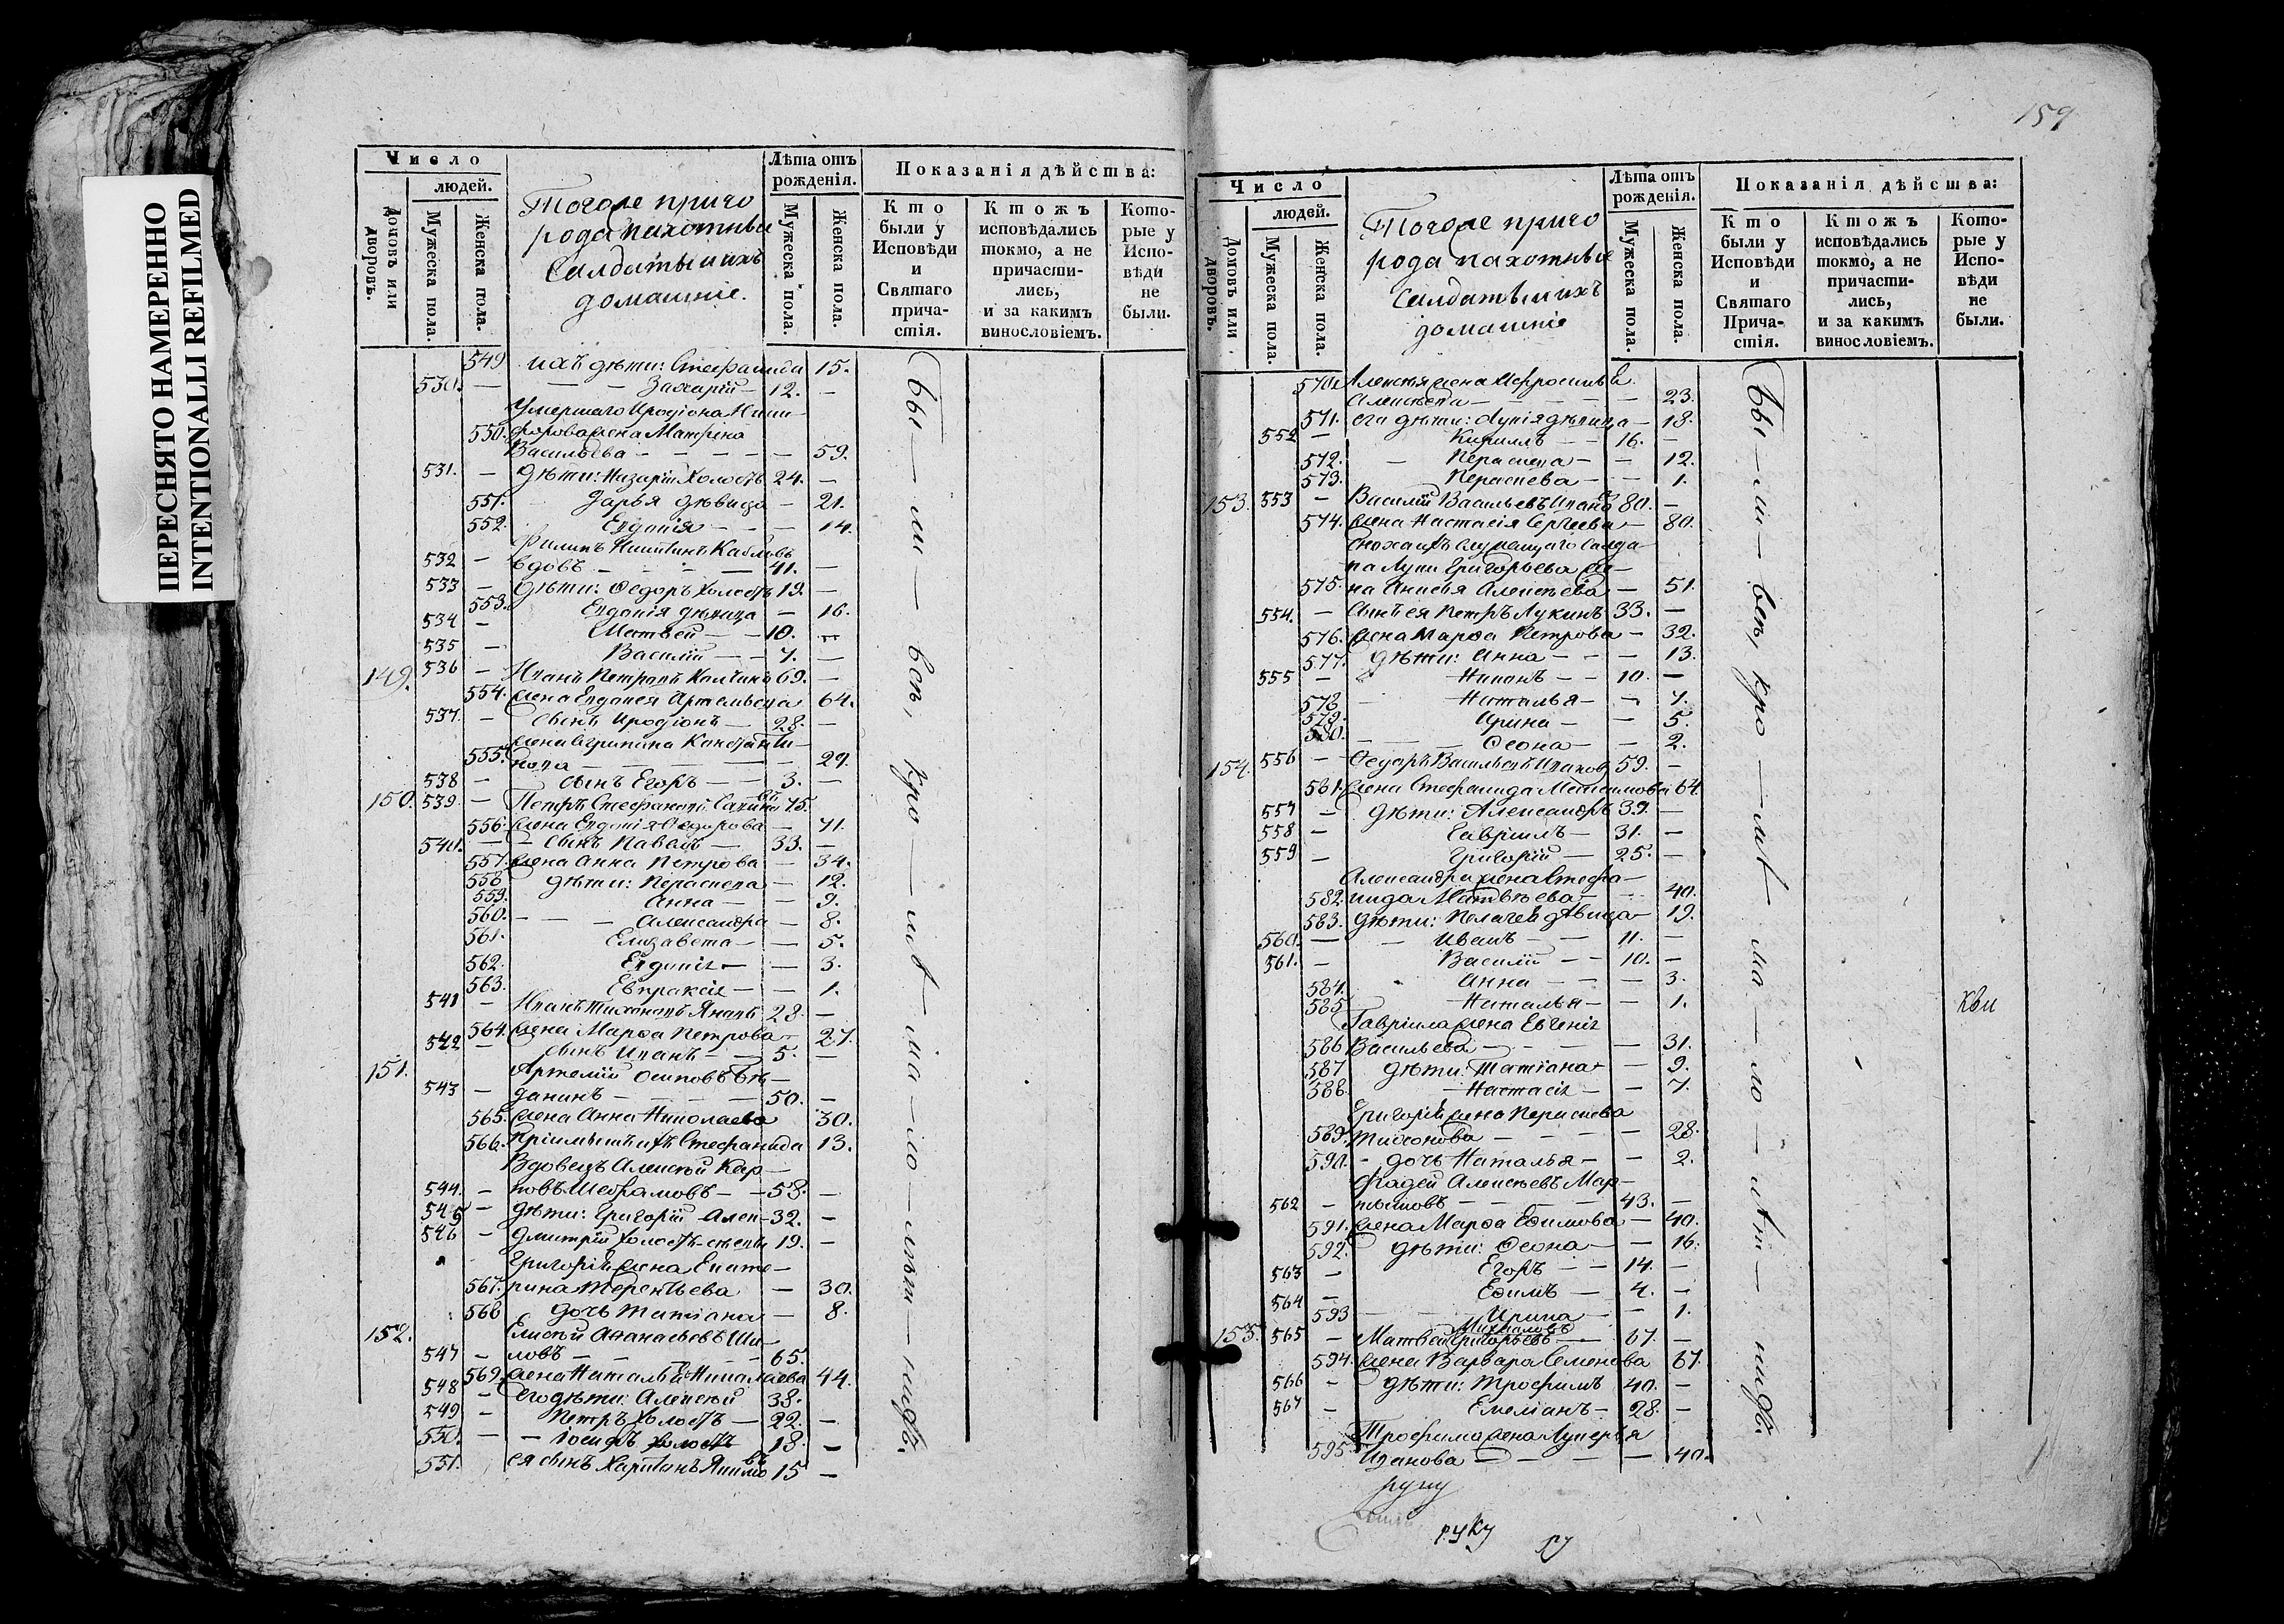 ПЕРЕСНЯТО НАМЕРЕННО
INTENTIONALLI REFILMED
Число
людей.
Домовъ или дворовъ.
Мужеска пола.
Женска пола.
Тогоже приго
рода пахотные
Салдаты и ихъ
домашніе.
Лѣта отъ рожденія.
Мужеска пола.
Женска пола.
Показанія дѣйства:
Кто были у Исповѣди и Святаго причастія.
Ктожъ исповѣдались токмо, а не причастились, и за какимъ винословіемъ.
Которые у Исповѣди не были.
549 ихъ дѣти: Стефанида 15.
530. — Захарій — 12. —
Умершаго Иродіона Ники—
550. форова жена Матрена
Васильева — 59.
531. — дѣти: Назарій холостъ 24. —
551. Дарья дѣвица — 21.
552. Евдокія — 14.
Филипъ Никитинъ
532 — вдовъ — 41. —
533 — дѣти: Ѳедоръ холостъ 19. —
553. Евдокія дѣвица — 16.
534 — Матвей — 10. —
535 — Василій — 7. —
149. 536 — Иванъ Петровъ 69. —
554. жена Евдокея Артемьева 64.
537. — сынъ Иродіонъ — 28. —
жена Агрипина Константи—
555. нова — 29.
538 — сынъ Егоръ — 3. —
150. 539. — Петръ Стефановъ 75.
556. жена Евдокія Ѳедорова — 71.
540. — сынъ Павелъ — 33. —
557. жена Анна Петрова — 34.
558 дѣти: Параскева — 12.
559. Анна — 9.
560. — Александра — 8.
561. Елизавета — 5.
562. Евдокія — 3.
563. Евпраксія — 1.
541 — Иванъ Тихоновъ 28. —
564. жена Марѳа Петрова — 27.
542 — сынъ Иванъ — 5. —
151. Артемій Осиповъ Бѣ—
543 — данинъ — 50. —
565. жена Анна Николаева 30.
566. пріимышъ ихъ Стефанида 13.
Вдовецъ Алексѣй Кар—
544. — повъ — 58. —
545 — дѣти: Григорій 32. —
546 — Дмитрій холостъ 19. —
Григорія жена Екате—
567. рина Терентьева — 30.
568 дочь Татіана — 8.
152. Елисѣй Аѳанасьевъ Ши—
547 — ловъ — 65.
569. жена Наталья Николаева 44.
548 — его дѣти: Алексѣй 38.
549 — Петръ холостъ — 22. —
550. — Іосифъ холостъ 18. —
551. ея сынъ Харитонъ 15 —
Бы — ли — всѣ, кро — мѣ — ма — ло — лѣт — нихъ.
159
Число
людей.
Домовъ или дворовъ.
Мужеска пола.
Женска пола.
Тогоже приго
рода пахотные
Салдаты и ихъ
домашніе
Лѣта отъ рожденія.
Мужеска пола.
Женска пола.
Показанія дѣйства:
Кто были у Исповѣди и Святаго Причастія.
Ктожъ исповѣдались токмо, а не причастились, и за какимъ винословіемъ.
Которые у Исповѣди не были.
570. Алексѣя жена
Алексѣева — 23.
571. его дѣти: Лукія дѣвица — 18.
552 — Кириллъ — 16. —
572. — Параскева — 12.
573. Параскева — 1.
153. 553 — Василій Васильевъ 80. —
574. жена Настасія Сергеева — 80.
Сноха ихъ служащаго салда—
та Луки Григорьева же—
575. на Анисья Алексѣева — 51.
554. — Сынъ ея Петръ Лукинъ 33. —
576. жена Марѳа Петрова — 32.
577. дѣти: Анна — 13.
555 — 10. —
578 — Наталья — 7.
579. Ирина — 5.
580. — Ѳеона — 2.
154. 556 — Ѳедоръ Васильевъ Ивановъ 59. —
581. жена Стефанида 64.
557 — дѣти: Александръ 39. —
558 — Гавріилъ — 31. —
559 — Григорій — 25. —
Александра жена Стефа—
582. нида Матвѣева — 40.
583. дѣти: Пелагея дѣвица 19.
560. — Иванъ — 11. —
561. — Василій — 10. —
584. Анна — 3.
585 Наталья — 1.
Гавріила жена Евгенія
586 Васильева — 31.
587 дѣти: Татіана — 9.
588. — Настасія — 7.
Григорія жена Параскева
589. Тихонова — 28.
590. — дочь Наталья — 2.
Фадей Алексѣевъ Мар—
562 — тыновъ — 43. —
591. жена Марѳа Еѳимова — 40.
592. дѣти: Ѳеона — 16.
563 — Егоръ — 14. —
564 — Еѳимъ — 4. —
593 — Ирина — 1.
Михаловъ
155. 565 — Матвей Григорьевъ — 67. —
594. жена Варвара Семенова 67.
566 — дѣти: Трофимъ 40. —
567 — Емеліанъ — 28. —
Трофима жена Лукерья
595 Иванова — 40.
Бы — ли — всѣ, кро — мѣ — ма — ло — лѣт — нихъ.
кви
руку
руку
ру